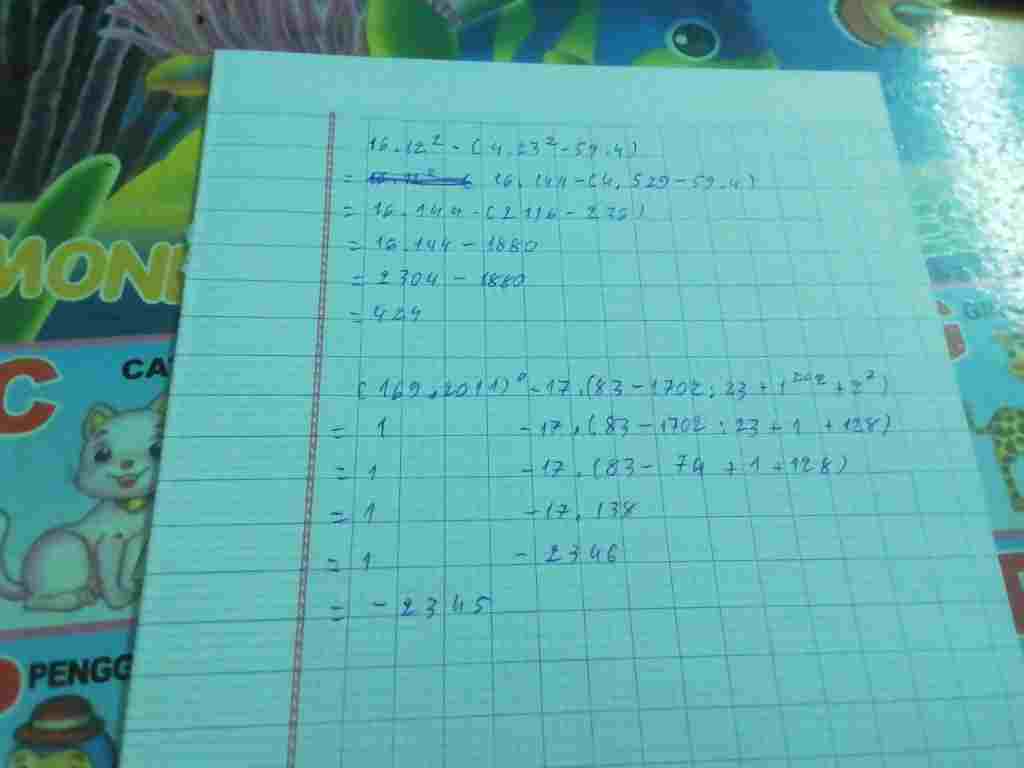 MON
C
CA
PENGG
16.12² - (4.23² - 59.4)
= 16.144 - (4.529 - 59.4)
= 16.144 - (2116 - 236)
= 16.144 - 1880
= 2304 - 1880
= 424
(169.2011)⁰ - 17.(83 - 1702:23 + 1²⁰¹² + 2⁷)
= 1 - 17.(83 - 1702:23 + 1 + 128)
= 1 - 17.(83 - 74 + 1 + 128)
= 1 - 17.138
= 1 - 2346
= - 2345